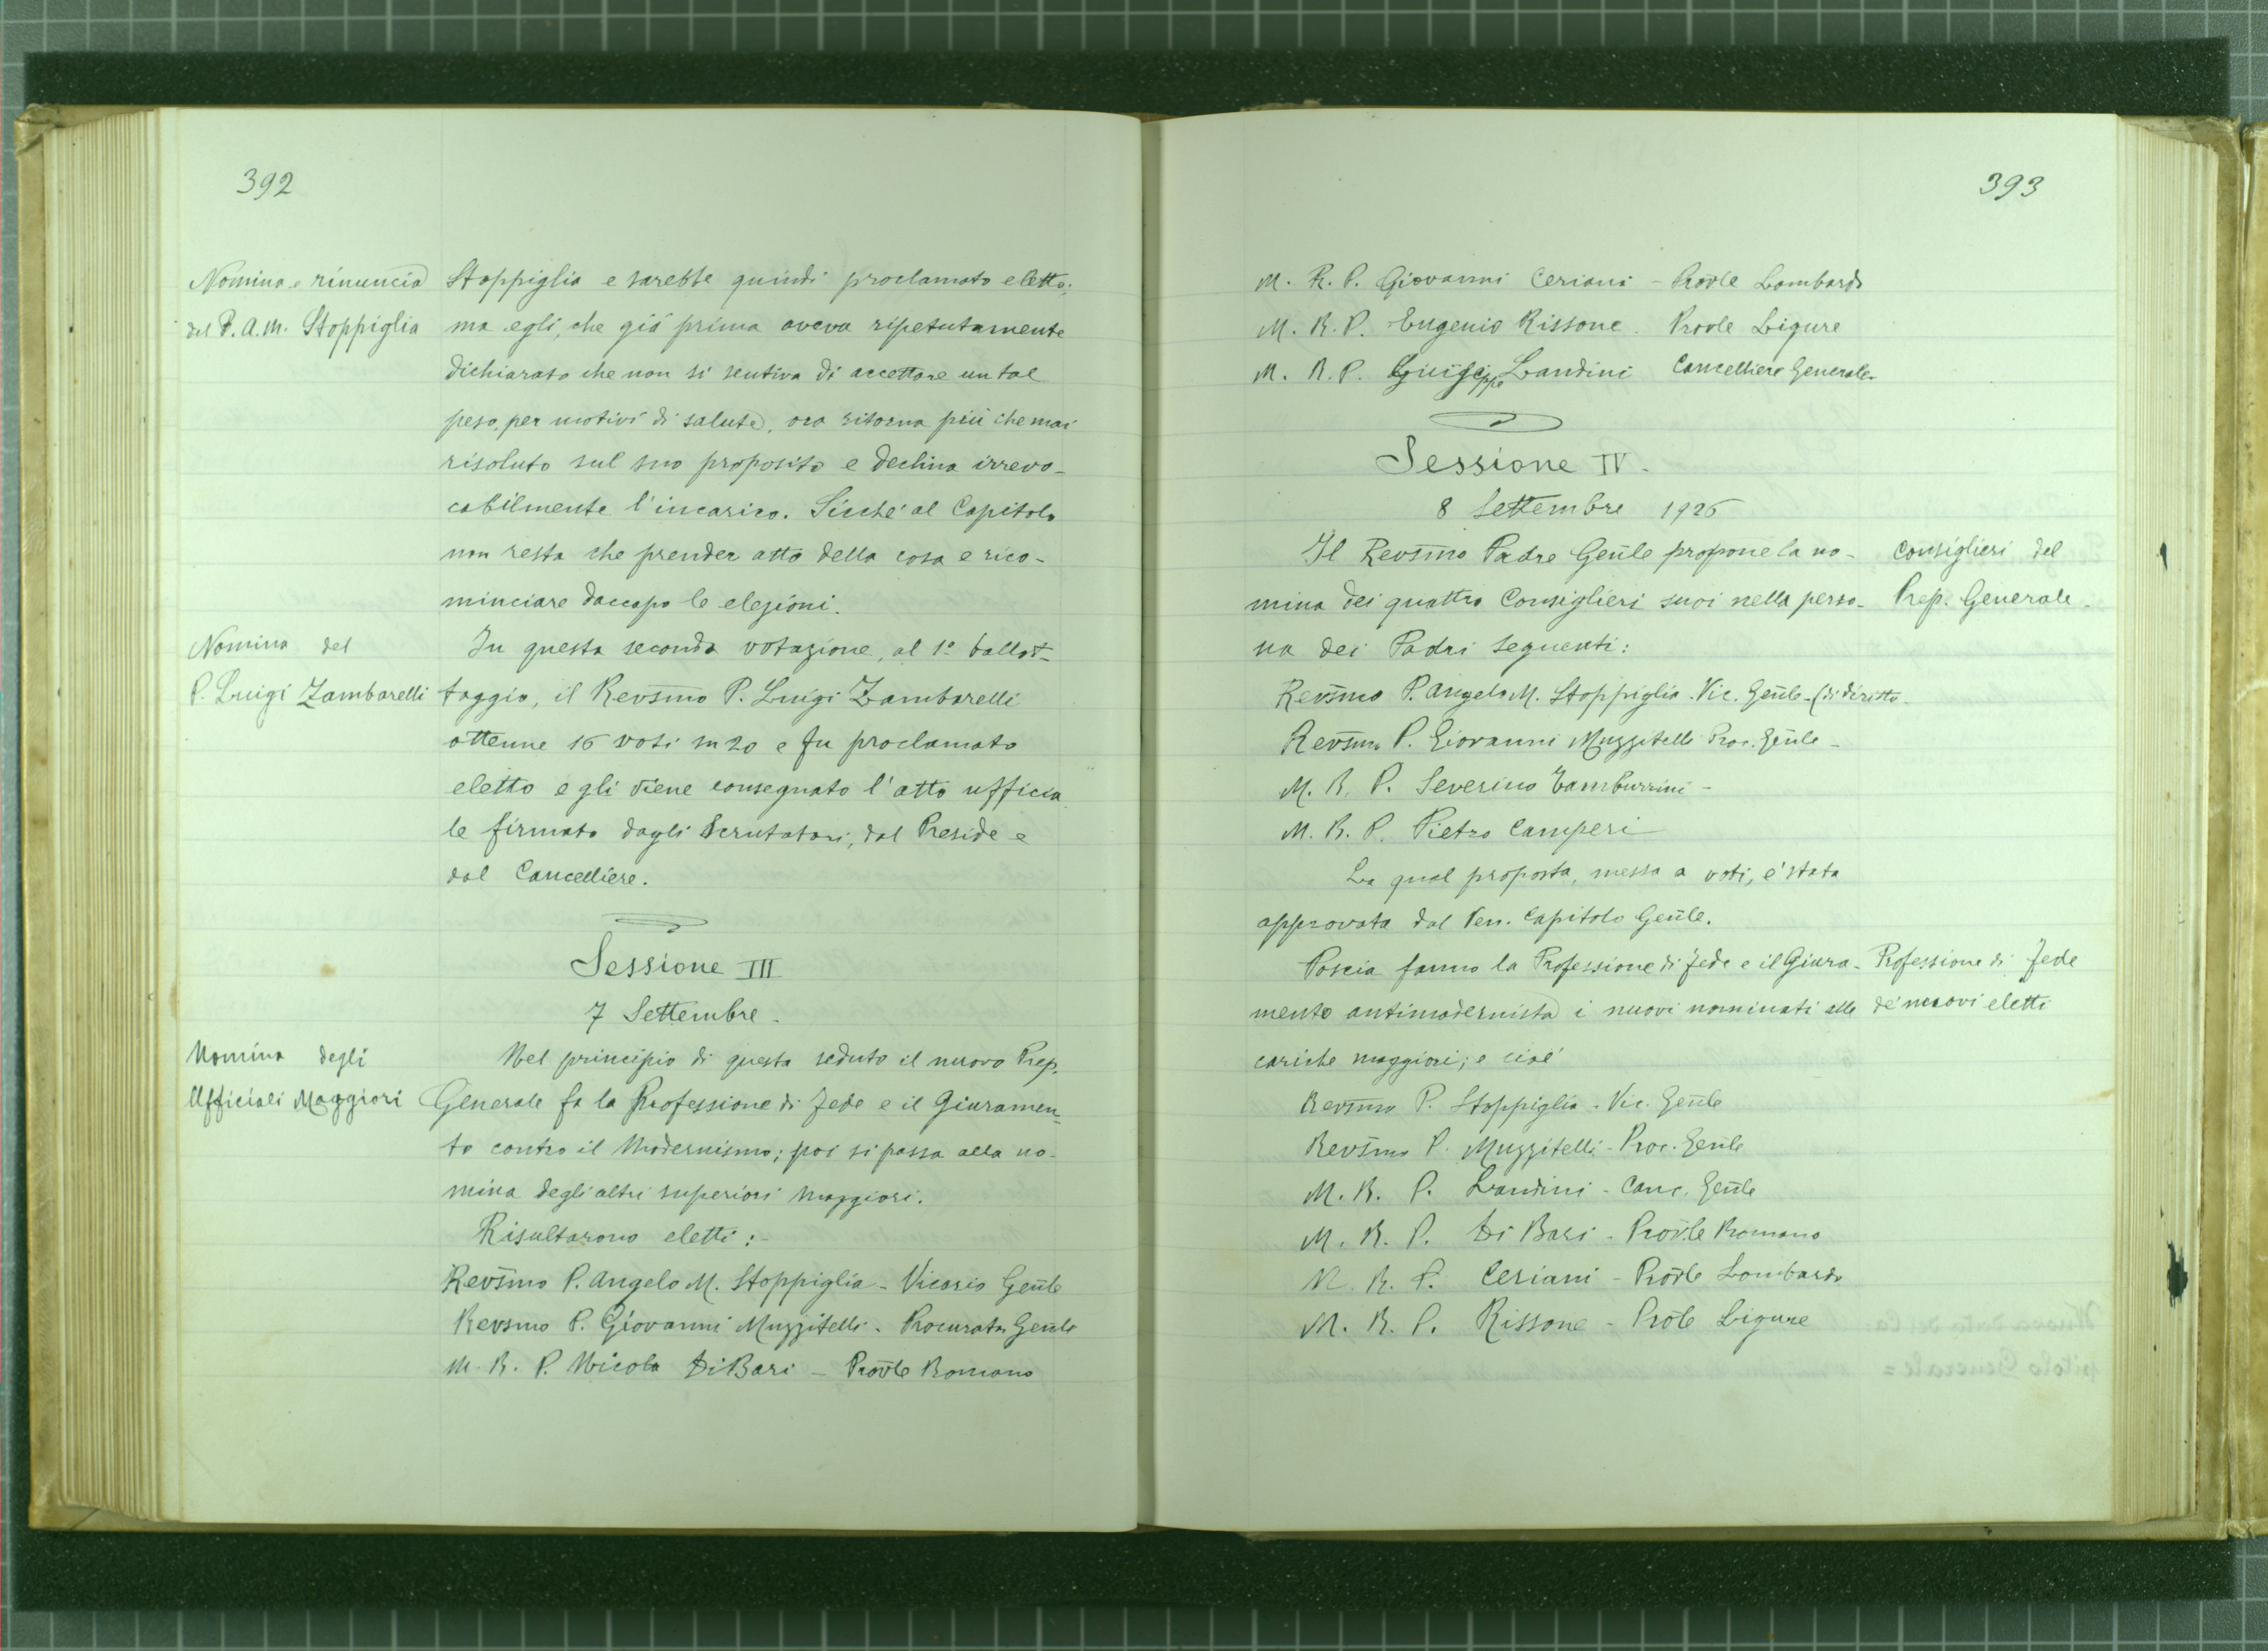 392
Nomina e rinuncia
del P. A. M. Stoppiglia
Stoppiglia e sarebbe quindi proclamato eletto;
ma egli, che già prima aveva ripetutamente
dichiarato che non si sentiva di accettare un tal
peso, per motivi di salute, ora ritorna più che mai
risoluto sul suo proposito e declina irrevo-
cabilmente l'incarico. Sicché al Capitolo
non resta che prender atto della cosa e rico-
minciare daccapo le elezioni.
Nomina del
P. Luigi Zambarelli
In questa seconda votazione, al 1º ballot-
taggio, il Revsmo P. Luigi Zambarelli
ottenne 16 voti su 20 e fu proclamato
eletto e gli viene consegnato l'atto ufficia
le firmato dagli Scrutatori, dal Preside e
dal Cancelliere.
Sessione III
7 Settembre.
Nomina degli
Ufficiali Maggiori
Nel principio di questa seduta il nuovo Prep.
Generale fa la Professione di Fede e il Giuramen-
to contro il Modernismo; poi si passa alla no-
mina degli altri superiori maggiori.
Risultarono eletti:-
Revsmo P. Angelo M. Stoppiglia - Vicario Genle
Revsmo P. Giovanni Muzzitelli - Procurator Genle
M. R. P. Nicola Di Bari - Provle Romano
393
M. R. P. Giovanni Ceriani - Provle Lombardo
M. R. P. Eugenio Rissone. Provle Ligure
M. R. P. Landini Cancelliere Generale.
Sessione IV.
8 Settembre 1926
Il Revsmo Padre Genle propone la no-
mina dei quattro Consiglieri suoi nella perso-
na dei Padri seguenti:
Consiglieri del
Prep. Generale.
Revsmo P. Angelo M. Stoppiglia. Vic. Genle - (di diritto.
Revsmo P. Giovanni Muzzitelli Proc. Genle -
M. R. P. Severino Tamburrini -
M. R. P. Pietro Camperi
La qual proposta, messa a voti, e' stata
approvata dal Ven. Capitolo Genle.
Poscia fanno la Professione di Fede e il Giura-
mento antimodernista i nuovi nominati alle
cariche maggiori; e cioè
Professione di Fede
de' nuovi eletti
Revsmo P. Stoppiglia - Vic. Genle
Revsmo P. Muzzitelli - Proc. Genle
M. R. P. Landini - Canc. Genle
M. R. P. Di Bari - Provle Romano
M. R. P. Ceriani - Provle Lombardo
M. R. P. Rissone - Prole Ligure